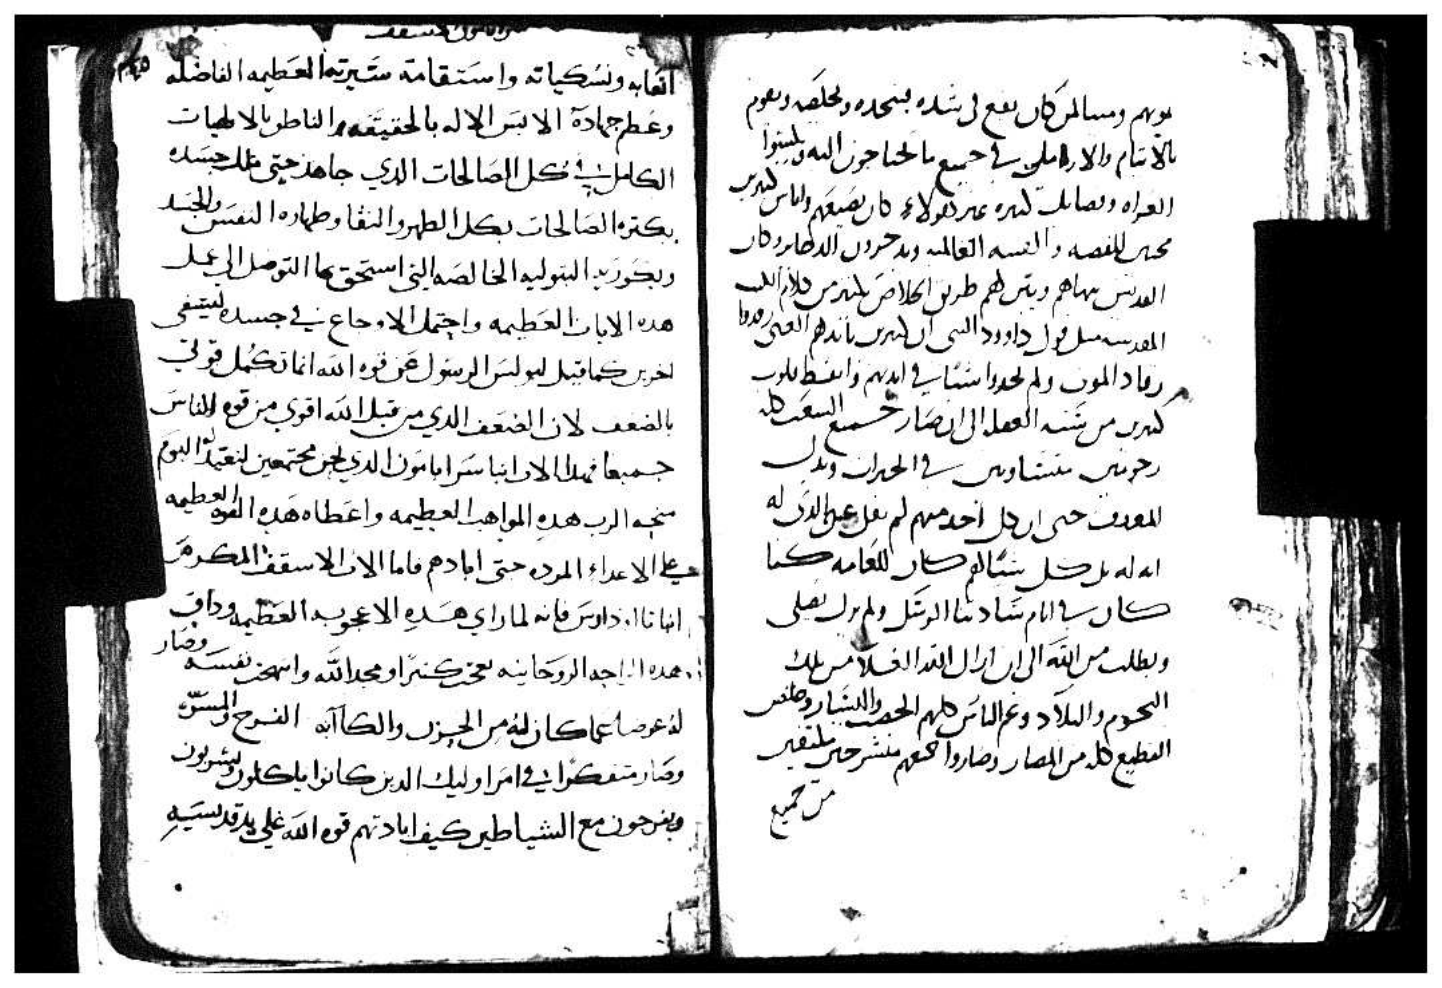 بيوتهم ومسالمن كان يقع في شده ينجده ويخلصه ويقوم
بالايتام والارامل في جميع ما يحتاجون اليه
العراه وفضايل كثيره غير هولاء كان يصنعهم واناس كثيرين
محبين للفضه والقنيه العالميه ويدخرون الدهابر وكان
القديس ينهاهم ويبين لهم طريق الخلاص من كلام الكتب
المقدسه مثل قول داوود النبي ان كثيرين باندهم الغنى رقدوا
رقاد الموت ولم يجدوا شيئا في ايديهم وايقظ قلوب
كثيرين من سنه الغفله الى ان صار جميع الشعب كله
رحومين متساويين في الخيرات وبدل
المعروف حتى ان كل احد منهم لم يقل عن الذي له
انه له بل كل شيئا لهم كان للعامه كما
كان في ايام ساداتنا الرسل ولم يزل يصلي
ويطلب من الله الى ان ازال الله الغلا من تلك
التخوم والبلاد وعم الناس كلهم الخصب والشبار وخلص
القطيع كله من المصار وصاروا كلهم منشرحين ملتفين
من جميع
اتعابه ونسكياته واستقامة سيرته العظيمه الفاضله
وعظم جهادة الابس الاله بالحقيقه والناطق بالالهيات
الكامل في كل الصالحات الذي جاهد حتى ملك جسده
بكثره الصالحات بكل الطهر والنقا وطهاره النفس والجسد
البتوليه الخالصه التي استحق بها التوصل الي عمل
هده الايات العظيمه واحتمل الاوجاع في جسده ليشفى
اخرين كما قيل لبولس الرسول عن قوه الله انما تكمل قوتي
بالضعف لان الضعف الذي من قبل الله اقوي من قوه الناس
جميعا فهدا الان انبا سرابامون الذي نحن مجتمعين لنعيد له اليوم
منحه الرب هده المواهب العظيمه واعطاه هده القوه العظيمه
علي الاعداء المرده حتى ابادهم فاما الان الاسقف المكرم
انبا تاادواوس فانه لما راي هده الاعجوبه العظيمه وداق
هده الراحه الروحانيه تعجب كثيرا ومجد الله وابتهجت نفسه وصار
له عوضا عما كان له من الحزن والكاآبه الفرح والمسره
وصار متفكرا في امر اوليك الدين كانوا ياكلون ويشربون
ويفرحون مع الشياطين كيف ابادتهم قوه الله علي يد قديسيه